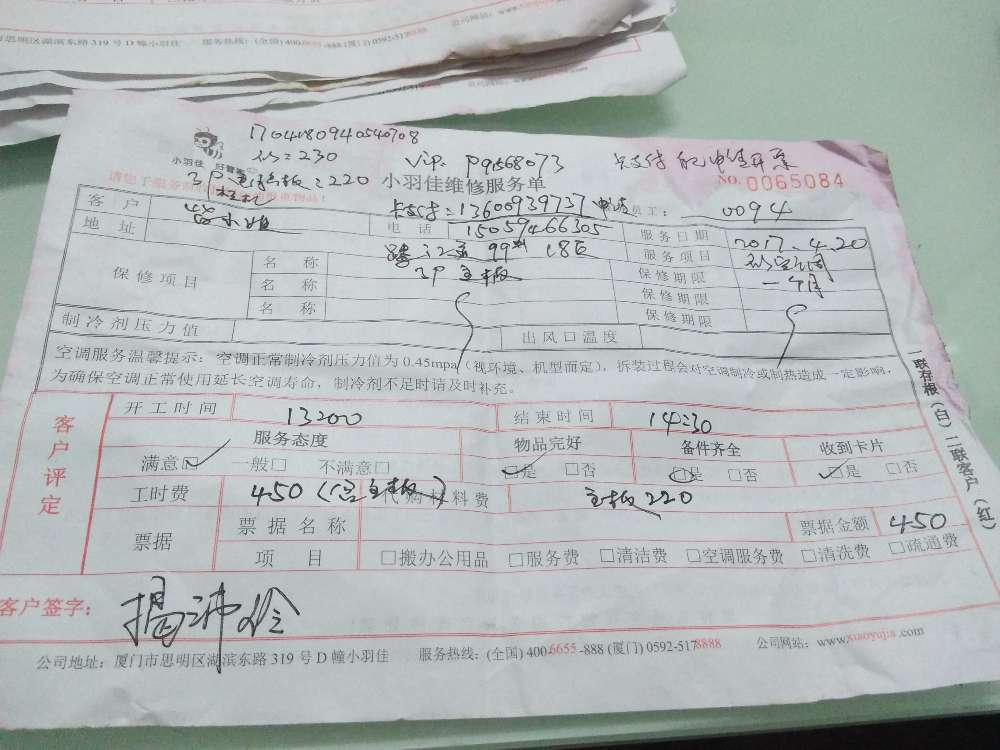 公司网站：www.xiaoyujia.com
市思明区湖滨东路319号D幢小羽佳 服务热线：(全国)400-6655-888(厦门)0592-5178888
1704180940540708
小羽佳 好管家
=230
VIP: P91568073
卡支付
NO. 0065084
请您于服务前
小羽佳维修服务单
=220
卡支付=13600939737 申请
员工： 0094
客户
电话 15059466305
服务日期 2017.4.20
地址
99 18E
服务项目
保修项目
名称 3P主板
保修期限 一个月
名称
保修期限
名称
保修期限
制冷剂压力值
出风口温度
空调服务温馨提示：空调正常制冷剂压力值为0.45mpa（视环境、机型而定），拆装过程会对空调制冷或制热造成一定影响，
为确保空调正常使用延长空调寿命，制冷剂不足时请及时补充。
一联存根（白）二联客户（红）
客户评定
开工时间 13:00
结束时间 14:30
服务态度 物品完好 备件齐全 收到卡片
满意☑ 一般□ 不满意□ ☑是 □否 ☑是 □否 ☑是 □否
工时费 450（含主板） 代购材料费 主板220
票据
票据名称
票据金额 450
项目 □搬办公用品 □服务费 □清洁费 □空调服务费 □清洗费 □疏通费
客户签字：
公司地址：厦门市思明区湖滨东路319号D幢小羽佳 服务热线：(全国)400-6655-888(厦门)0592-5178888 公司网站：www.xiaoyujia.com